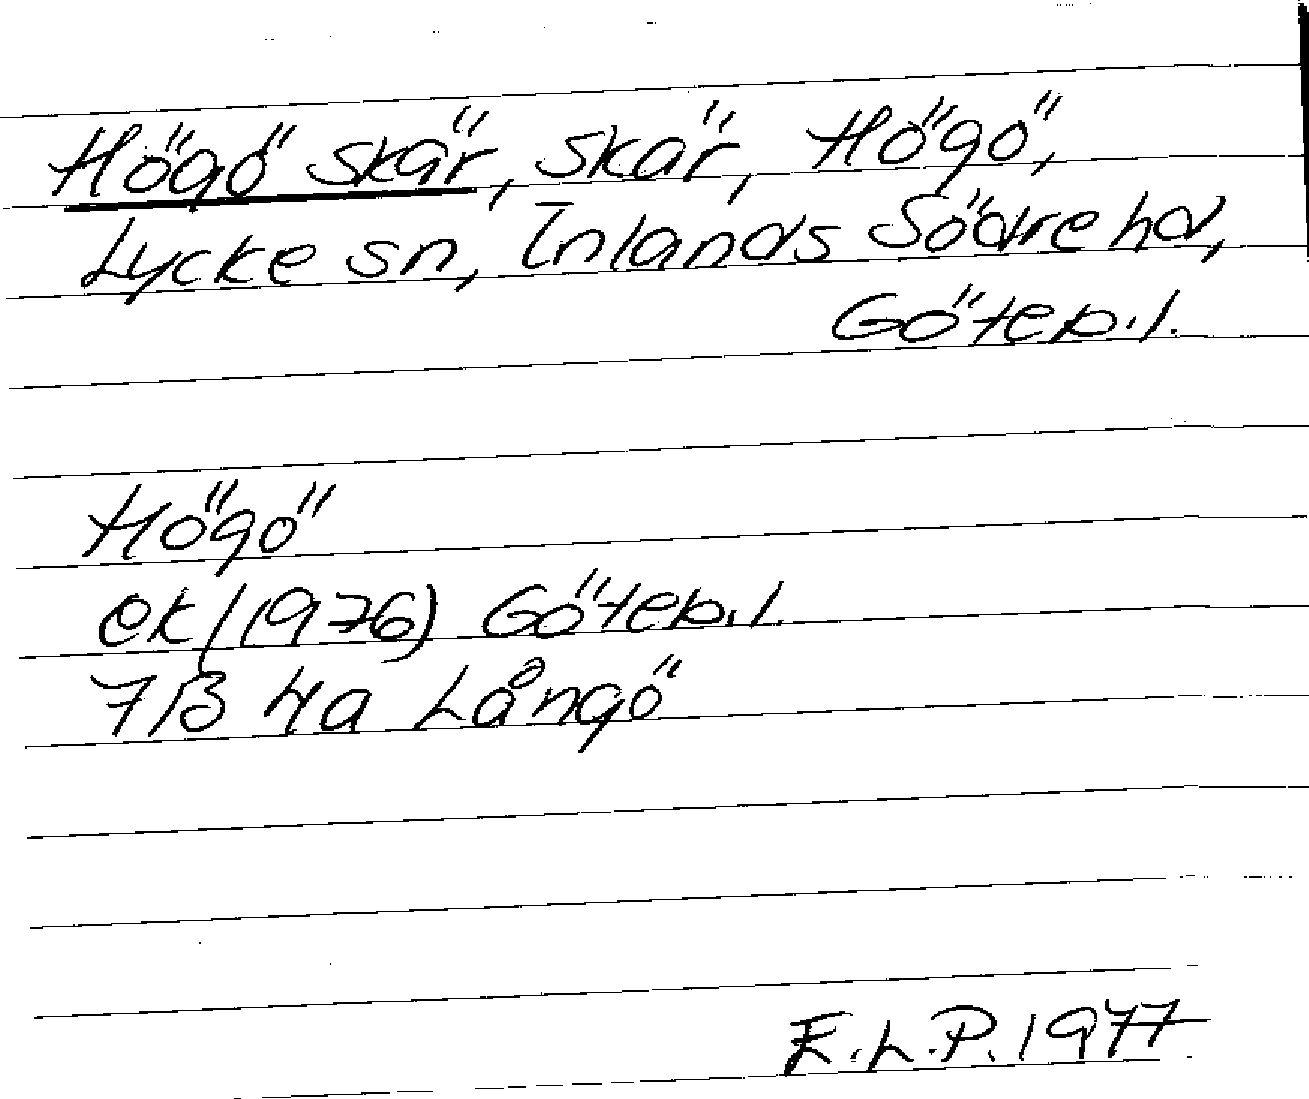 Högö skär, skär, Högö,
Lycke sn, Inlands Södre hd,
Göteb.l.
Högö
ek/(1976) Göteb.l.
7B 4a Långö
E.L.P. 1977